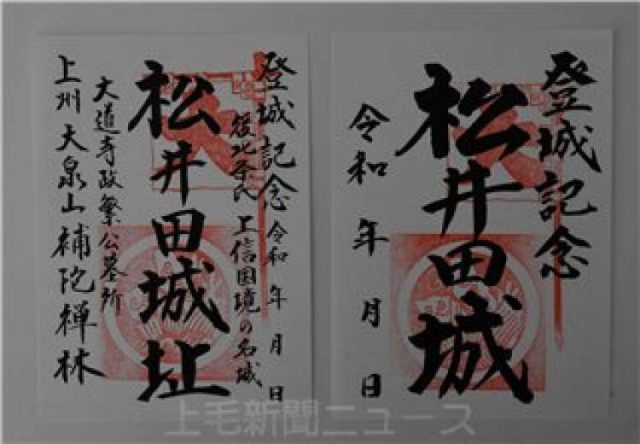 登城記念
松井田城
令和 年 月 日
登城記念 令和 年 月 日
後北条氏 上信国境の名城
松井田城址
大道寺政繁公墓所
上州 大泉山 補陀禅林
上毛新聞ニュース